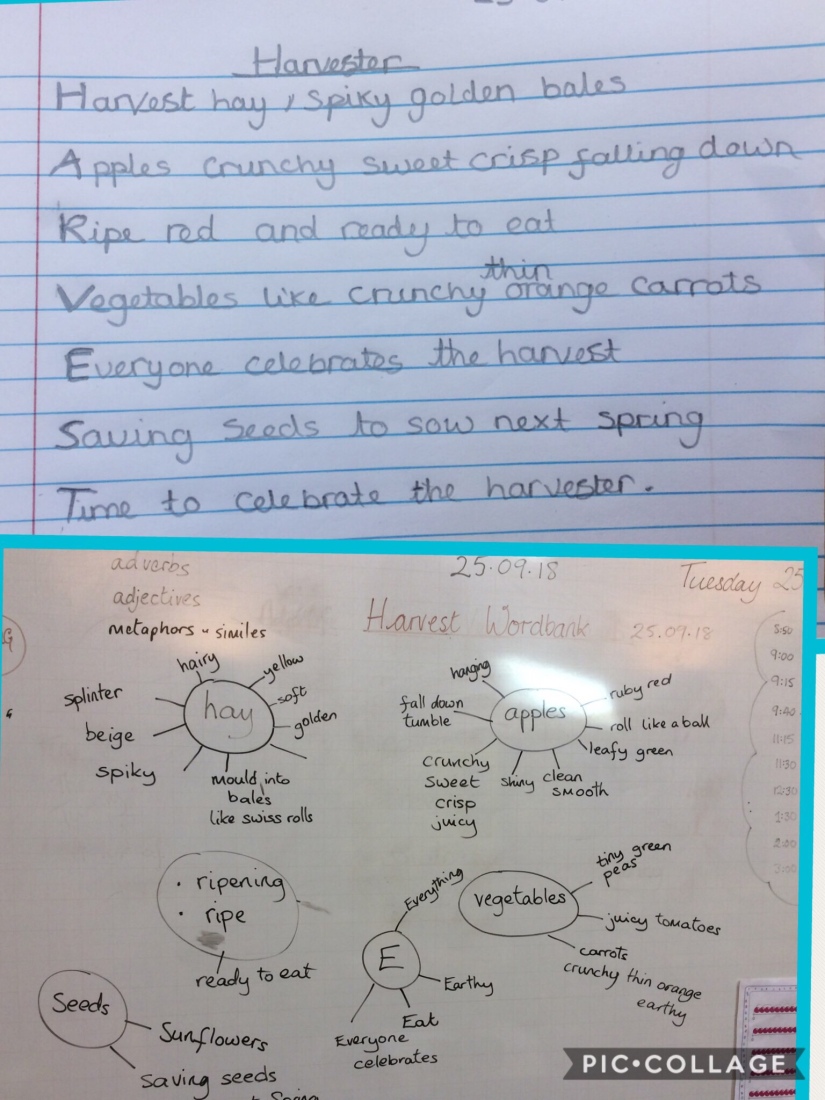 Harvester
Harvest hay, spiky golden bales
Apples crunchy sweet crisp falling down
Ripe red and ready to eat
Vegetables like crunchy thin orange carrots
Everyone celebrates the harvest
Saving seeds to sow next spring
Time to celebrate the harvester.
adverbs
adjectives
metaphors - similes
25.09.18
Tuesday 25
Harvest Wordbank 25.09.18
hay
hairy
yellow
soft
golden
splinter
beige
spiky
mould into
bales
like swiss rolls
apples
hanging
ruby red
fall down
tumble
roll like a ball
leafy green
crunchy
sweet
crisp
juicy
shiny
clean
smooth
8:50
9:00
9:15
9:40
11:15
11:30
1:30
2:00
3:00
• ripening
• ripe
ready to eat
E
Everything
Earthy
Eat
Everyone
celebrates
vegetables
tiny green
peas
juicy tomatoes
carrots
crunchy thin orange
earthy
Seeds
Sunflowers
Saving seeds
PIC•COLLAGE